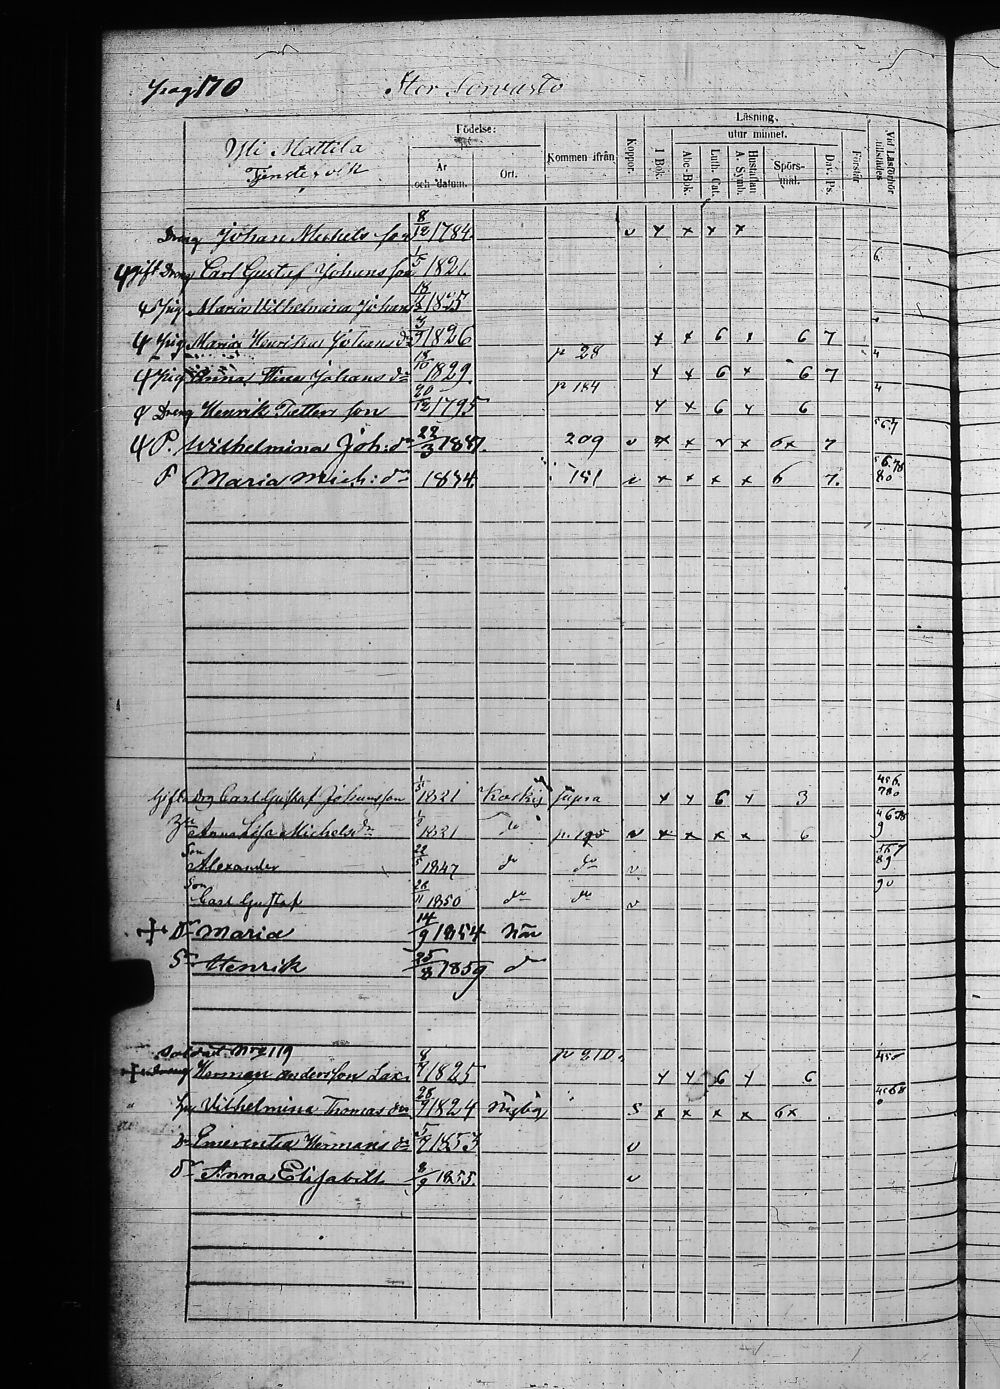 pag 170 Stor Sorvasto
Yli Mattila
Tjenstefolk
Födelse:
År och datum.
Ort.
Kommen ifrån
Koppor.
Läsning.
I Bok.
utur minnet.
Abc-Bok.
Luth. Cat.
Hustaflan A. Symb.
Spörs-mål.
Dav. Ps.
Förstår
Vid Läsförhör tillstädes
Dreng Johan Michels son 8/12 1784 v x x x x
gift Dreng Carl Gustaf Johans son 1/5 1821 6
Pig. Maria Wilhelmina Johans 18/5 1825
Pig Maria Henrika Johans dr 3/9 1826 x x 6 x 6 7
Pig Anna Stina Johans dr 18/10 1829 p 28 x x 6 x 6 7 4
Dreng Henrik Petter son 20/12 1795 p 184 x x 6 x 6 4
P. Wilhelmina Joh: dr 22/3 1837. 209 v x x x x 6x 7
P Maria Mich: dr 1834 181 v x x x x 6 7. 6.78 80
Gift Drg Carl Gustaf Johansson 1/5 1821 supra x x 6 x 3 456 780
Hu Anna Lisa Michels dr 1821 do v x x x x 6
Son Alexander 22/5 1847 do do v
Son Carl Gustaf 26/11 1850 do do v 90
Dr Maria 14/9 1854 här
Sn Henrik 25/8 1859 do
Soldat Nro 119 p 210. 450
Dreng Herman Andersson Lax 8/7 1825 x x 6 x 6
Hu Vilhelmina Thomas dr 28/9 1824 S x x x x 6x
Dr Emerentia Hermans dr 5/9 1853 v
Dr Anna Elisabeth 8/9 1855. v